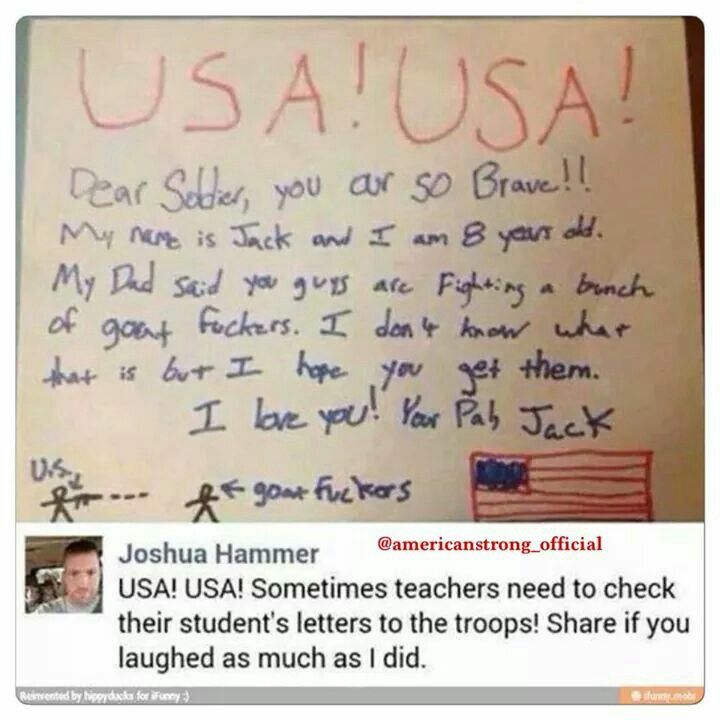 USA! USA!
Dear Soldier, you ar so Brave!!
My name is Jack and I am 8 years old.
My Dad said you guys are Fighting a bunch
of goat fuckers. I don't know what
that is but I hope you get them.
I love you! Your Pal, Jack
U.S.
goat fuckers
Joshua Hammer
@americanstrong_official
USA! USA! Sometimes teachers need to check
their student's letters to the troops! Share if you
laughed as much as I did.
Reinvented by hippyducks for iFunny :)
ifunny.mobi